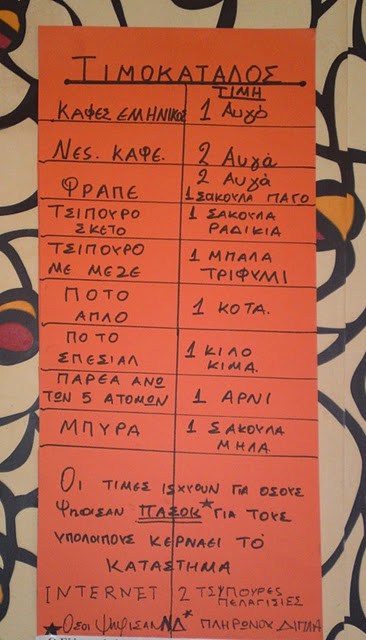 ΤΙΜΟΚΑΤΑΛΟΣ
ΤΙΜΗ
ΚΑΦΕΣ ΕΛΗΝΙΚΟΣ 1 Αυγό
Νες. ΚΑΦΕ. 2 Αυγά
ΦΡΑΠΕ 2 Αυγά
1 ΣΑΚΟΥΛΑ ΠΑΓΟ
ΤΣΙΠΟΥΡΟ 1 ΣΑΚΟΥΛΑ
ΣΚΕΤΟ ΡΑΔΙΚΙΑ
ΤΣΙΠΟΥΡΟ 1 ΜΠΑΛΑ
ΜΕ ΜΕΖΕ ΤΡΙΦΥΜΙ
ΠΟΤΟ 1 ΚΟΤΑ.
ΑΠΛΟ
ΠΟΤΟ 1 ΚΙΛΟ
ΣΠΕΣΙΑΛ ΚΙΜΑ.
ΠΑΡΕΑ ΑΝΩ 1 ΑΡΝΙ
ΤΩΝ 5 ΑΤΟΜΩΝ
ΜΠΥΡΑ 1 ΣΑΚΟΥΛΑ
ΜΗΛΑ
Οι ΤΙΜΕΣ ΙΣΧΥΟΥΝ ΓΙΑ ΟΣΟΥΣ
Ψηφισαν ΠΑΣΟΚ★ ΓΙΑ ΤΟΥΣ
ΥΠΟΛΟΙΠΟΥΣ ΚΕΡΝΑΕΙ ΤΟ
ΚΑΤΑΣΤΗΜΑ
INTERNET 2 ΤΣΥΠΟΥΡΕΣ
ΠΕΛΑΓΙΣΙΕΣ
★ΟΣΟΙ ΨΗΦΙΣΑΝ ΝΔ* ΠΛΗΡΩΝΟΥΝ ΔΙΠΛΑ